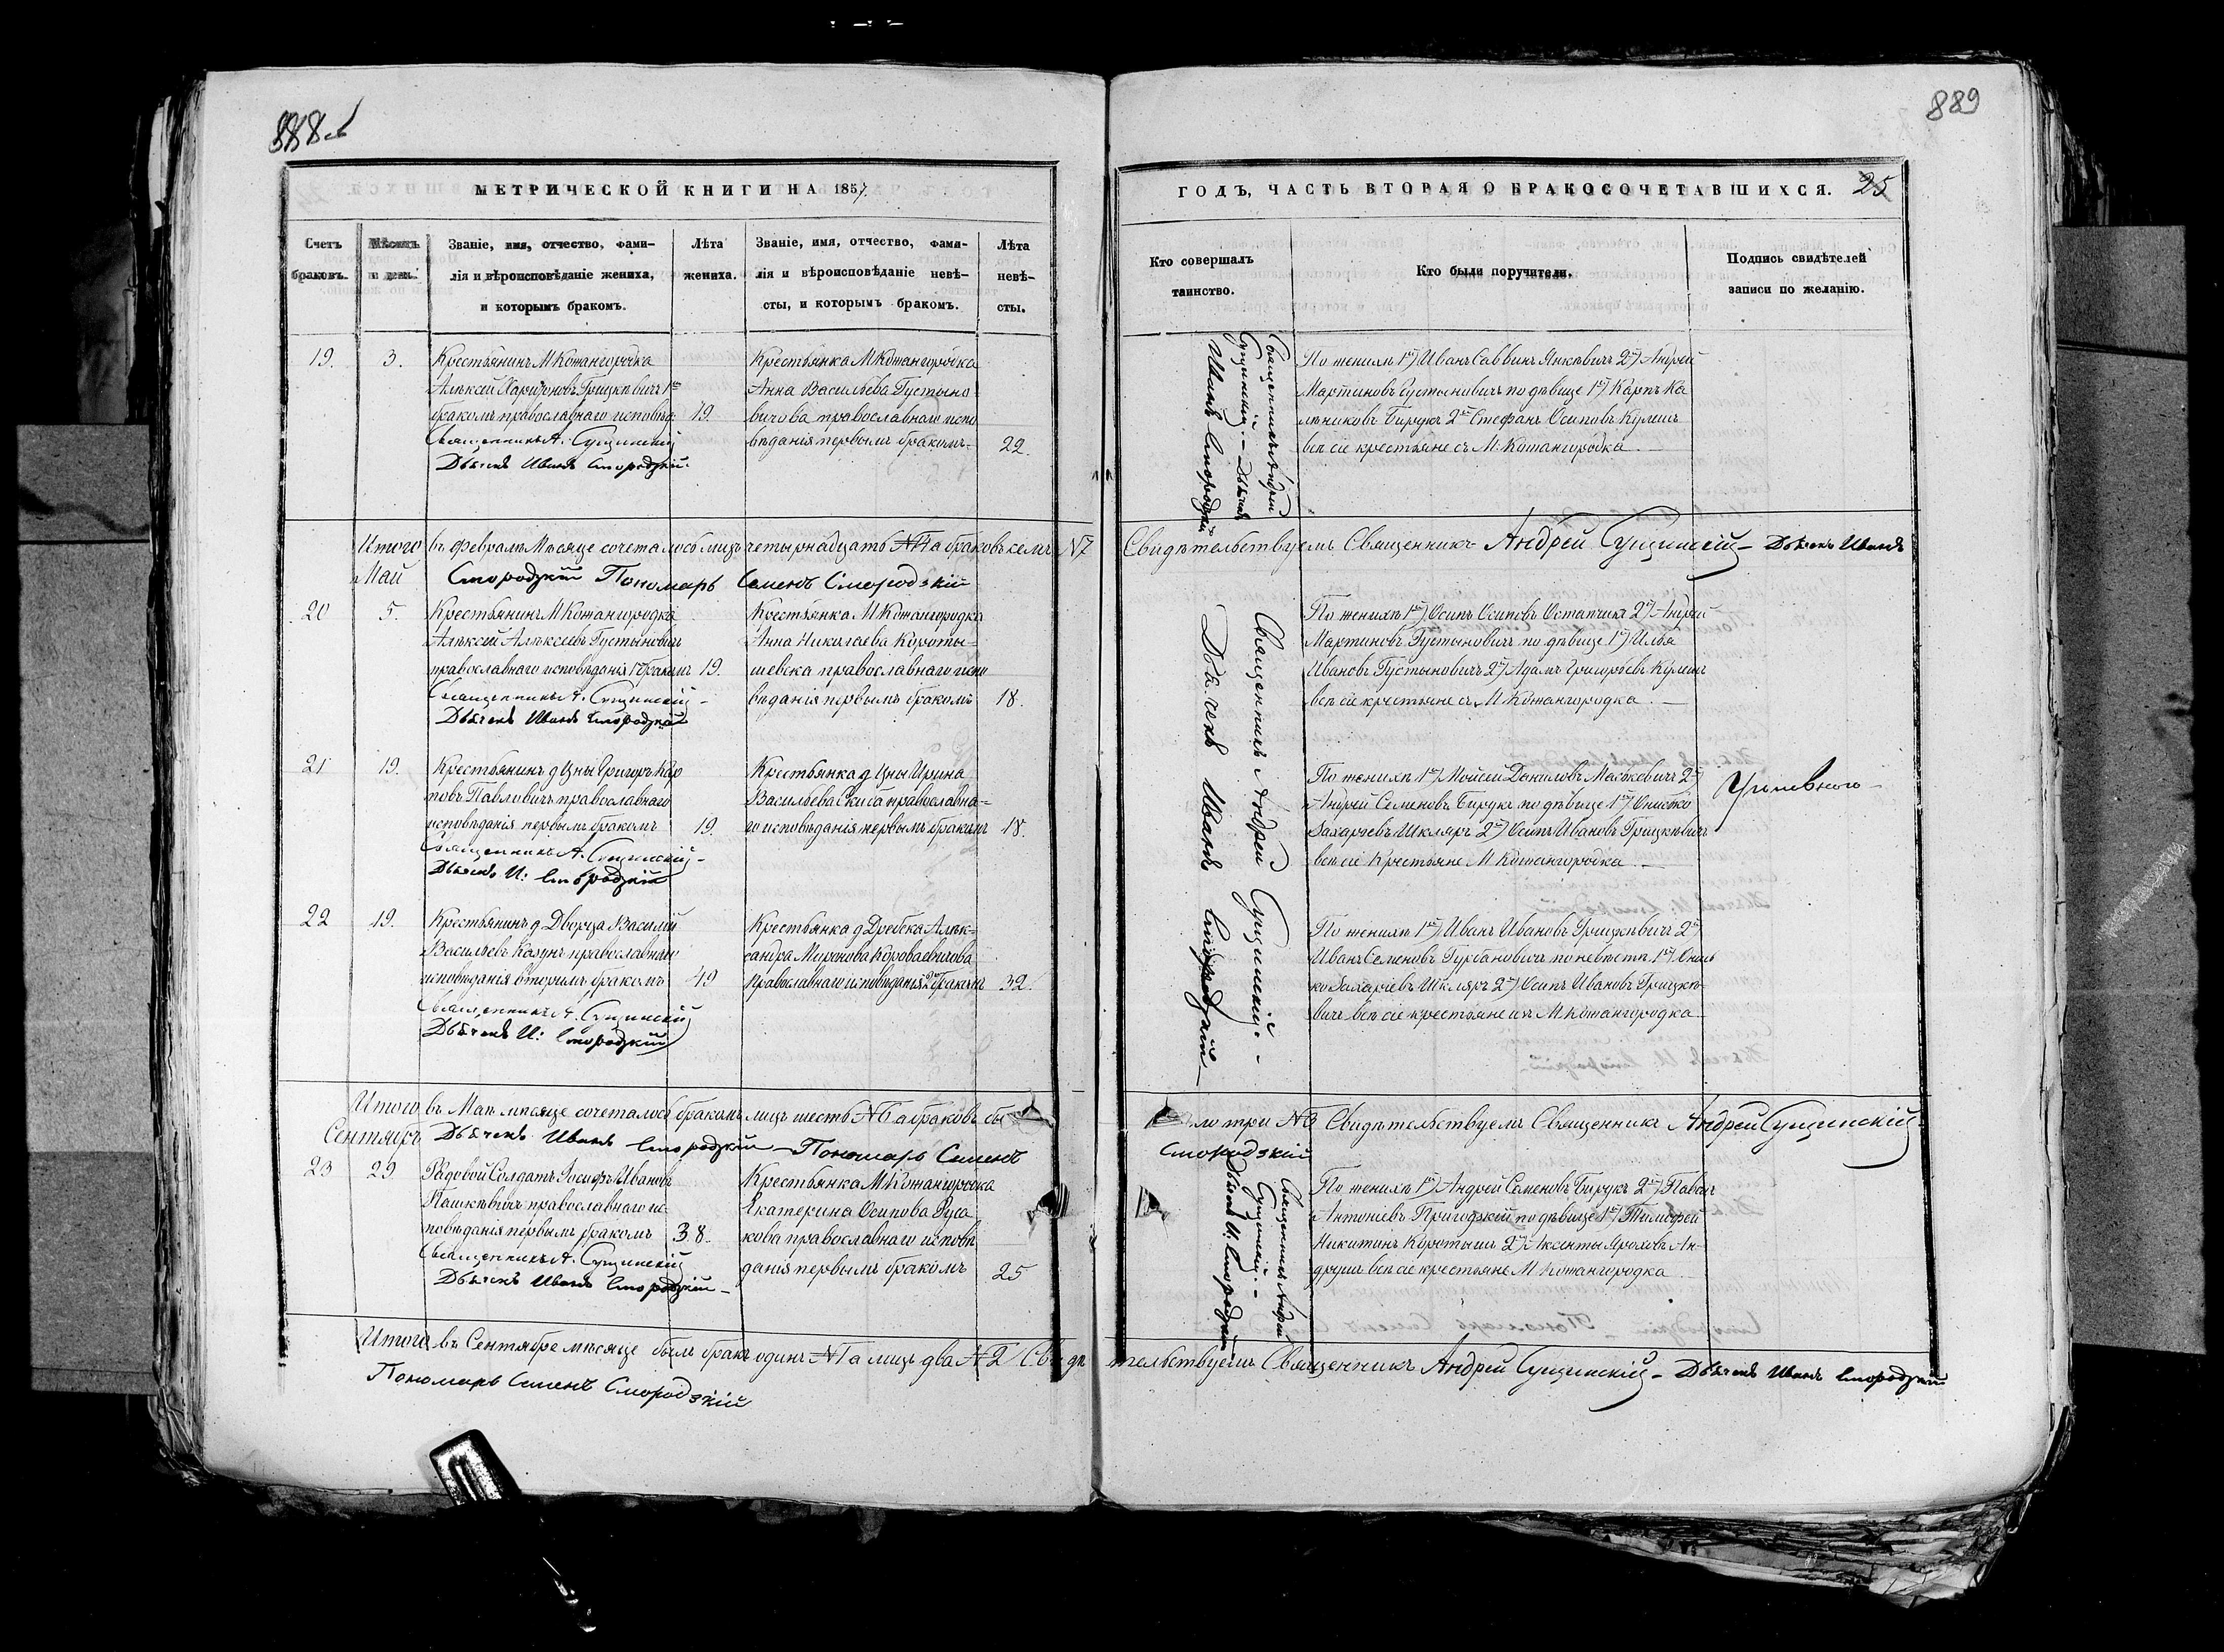 889
МЕТРИЧЕСКОЙ КНИГИ НА 1857.
ГОДЪ, ЧАСТЬ ВТОРАЯ О БРАКОСОЧЕТАВШИХСЯ. 25
Счетъ
браковъ.
Мѣсяцъ
и день.
Званіе, имя, отчество, фами-
лія и вѣроисповѣданіе жениха,
и которымъ бракомъ.
Лѣта
жениха.
Званіе, имя, отчество, фами-
лія и вѣроисповѣданіе невѣ-
сты, и которымъ бракомъ.
Лѣта
невѣ-
сты.
Кто совершалъ
таинство.
Кто были поручители.
Подпись свидѣтелей
записи по желанію.
19.
3.
Крестьянинъ М Кожангородка
Алѣксѣй Харитоновъ Грицкѣвичъ 1мъ
бракомъ православнаго исповѣд:
Священникъ А. Сущинскій
Дьячекъ Иванъ Смородзкій.
19.
Крестьянка М Кожангородка
Анна Васильева Густыно
вичова православнаго испо
вѣданія первымъ бракомъ.
22.
Священникъ Андрей
Сущинскій. – Дьячекъ
Иванъ Смородзкій
По женихѣ 1й) Иванъ Саввинъ Янкѣвичъ 2й) Андрей
Мартиновъ Густыновичъ по дѣвице 1й) Карпъ Ка
лѣниковъ Бирукъ 2й Стефанъ Осиповъ Кулишъ
всѣ сіе крестьяне съ М. Кожангородка. —
Итого въ февралѣ Мѣсяце сочеталось лицъ четырнадцать №14 а браковъ семь №7 Свидѣтельствуемъ Священникъ Андрей Сущинскій – Дьячекъ Иванъ
Май Смородзкій Пономарь Семенъ Смородзкій
20
5.
Крестьянинъ М Кожангородка
Алѣксѣй Алѣксѣевъ Густыновичъ
православнаго исповѣданія 1 бракомъ
Священникъ А. Сущинскій –
Дьячекъ Иванъ Смородзкій
19.
Крестьянка М Кожангородка
Анна Николаева Короты-
шевска православнаго испо
вѣданія первымъ бракомъ
18.
Священникъ Андрей Сущинскій: –
Дьячекъ Иванъ Смородзкій –
По женихѣ 1й) Осипъ Осиповъ Остапчикъ 2й) Андрей
Мартиновъ Густыновичъ по дѣвице 1й) Илья
Ивановъ Густыновичъ 2й) Адамъ Григорьевъ Кулишъ
всѣ сіе крестьяне съ М Кожангородка. —
21
19.
Крестьянинъ д Цны Григоръ Кар
повъ Павловичъ православнаго
исповѣданія первымъ бракомъ
Священникъ А. Сущинскій –
Дьячекъ И: Смородзкій
19.
Крестьянка д Цны Ирина
Васильева Скиба православна=
го исповѣданія первымъ бракомъ
18.
По женихѣ 1й) Мойсей Даниловъ Маськевичъ 2й)
Андрей Семеновъ Бирукъ по дѣвице 1й) Онисько
Захаріевъ Шкляръ 2й) Осипъ Ивановъ Грицкѣвичъ
всѣ сіе Крестьяне М Кожангородка. —
22
19.
Крестьянинъ д Дворца Василій
Васильевъ Казунъ православнаго
исповѣданія вторымъ бракомъ
Священникъ А. Сущинскій
Дьячекъ И: Смородзкій
49
Крестьянка д Дребска Алѣк-
сандра Миронова Короваевичова
Православнаго исповѣданія 2 бракомъ
32.
По женихѣ 1й) Иванъ Ивановъ Грицкѣвичъ 2й
Иванъ Семеновъ Гурбановичъ по невѣстѣ 1й) Онись
ко Захаріевъ Шкляръ 2й) Осипъ Ивановъ Грицкѣ-
вичъ всѣ сіе крестьяне изъ М Кожангородка
Итого въ Маѣ мѣсяце сочеталось бракомъ лицъ шесть №6 а браковъ бы ло три №3 Свидѣтельствуемъ Священникъ Андрей Сущинскій
Сентябрь Дьячекъ Иванъ Смородзкій – Пономарь Семенъ Смородзкій
23
29
Рядовой Солдатъ Іосифъ Ивановъ
Пашкѣвичъ православнаго ис
повѣданія первымъ бракомъ
Священникъ А. Сущинскій
Дьячекъ Иванъ Смородзкій –
38.
Крестьянка М Кожангородка
Екатерина Осипова Руса
кова православнаго исповѣ
данія первымъ бракомъ
25
Священникъ Андрей
Сущинскій. –
Дьячекъ И. Смородзкій
По женихѣ 1й) Андрей Семеновъ Бирукъ 2й) Павелъ
Антоніевъ Пригодзкій по дѣвице 1й) Тимофей
Никитинъ Коротышъ 2й) Аксенты Яроховъ Ан-
друшъ всѣ сіе крестьяне М Кожангородка
Итого въ Сентябре мѣсяце былъ бракъ одинъ №1 а лицъ два №2 Свидѣ тельствуемъ Священникъ Андрей Сущинскій – Дьячекъ Иванъ Смородзкій
Пономарь Семенъ Смородзкій